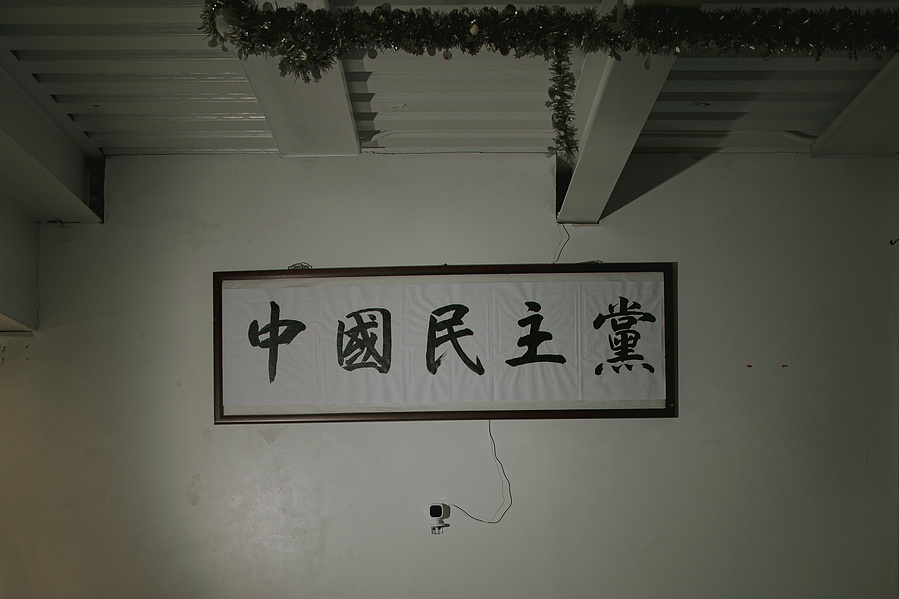 中國民主黨